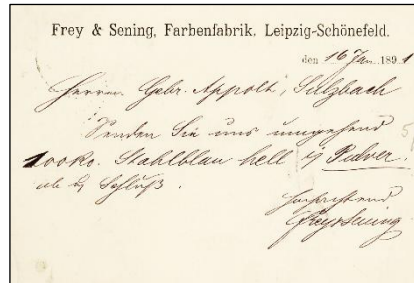 Frey & Sening, Farbenfabrik, Leipzig-Schönefeld.
den 16 Jan. 1891
Herren Gebr. Appolt, Sulzbach
Senden Sie uns umgehend
100 ko. Stahlblau hell i/ Pulver.
ab Schluß.
Frey & Sening